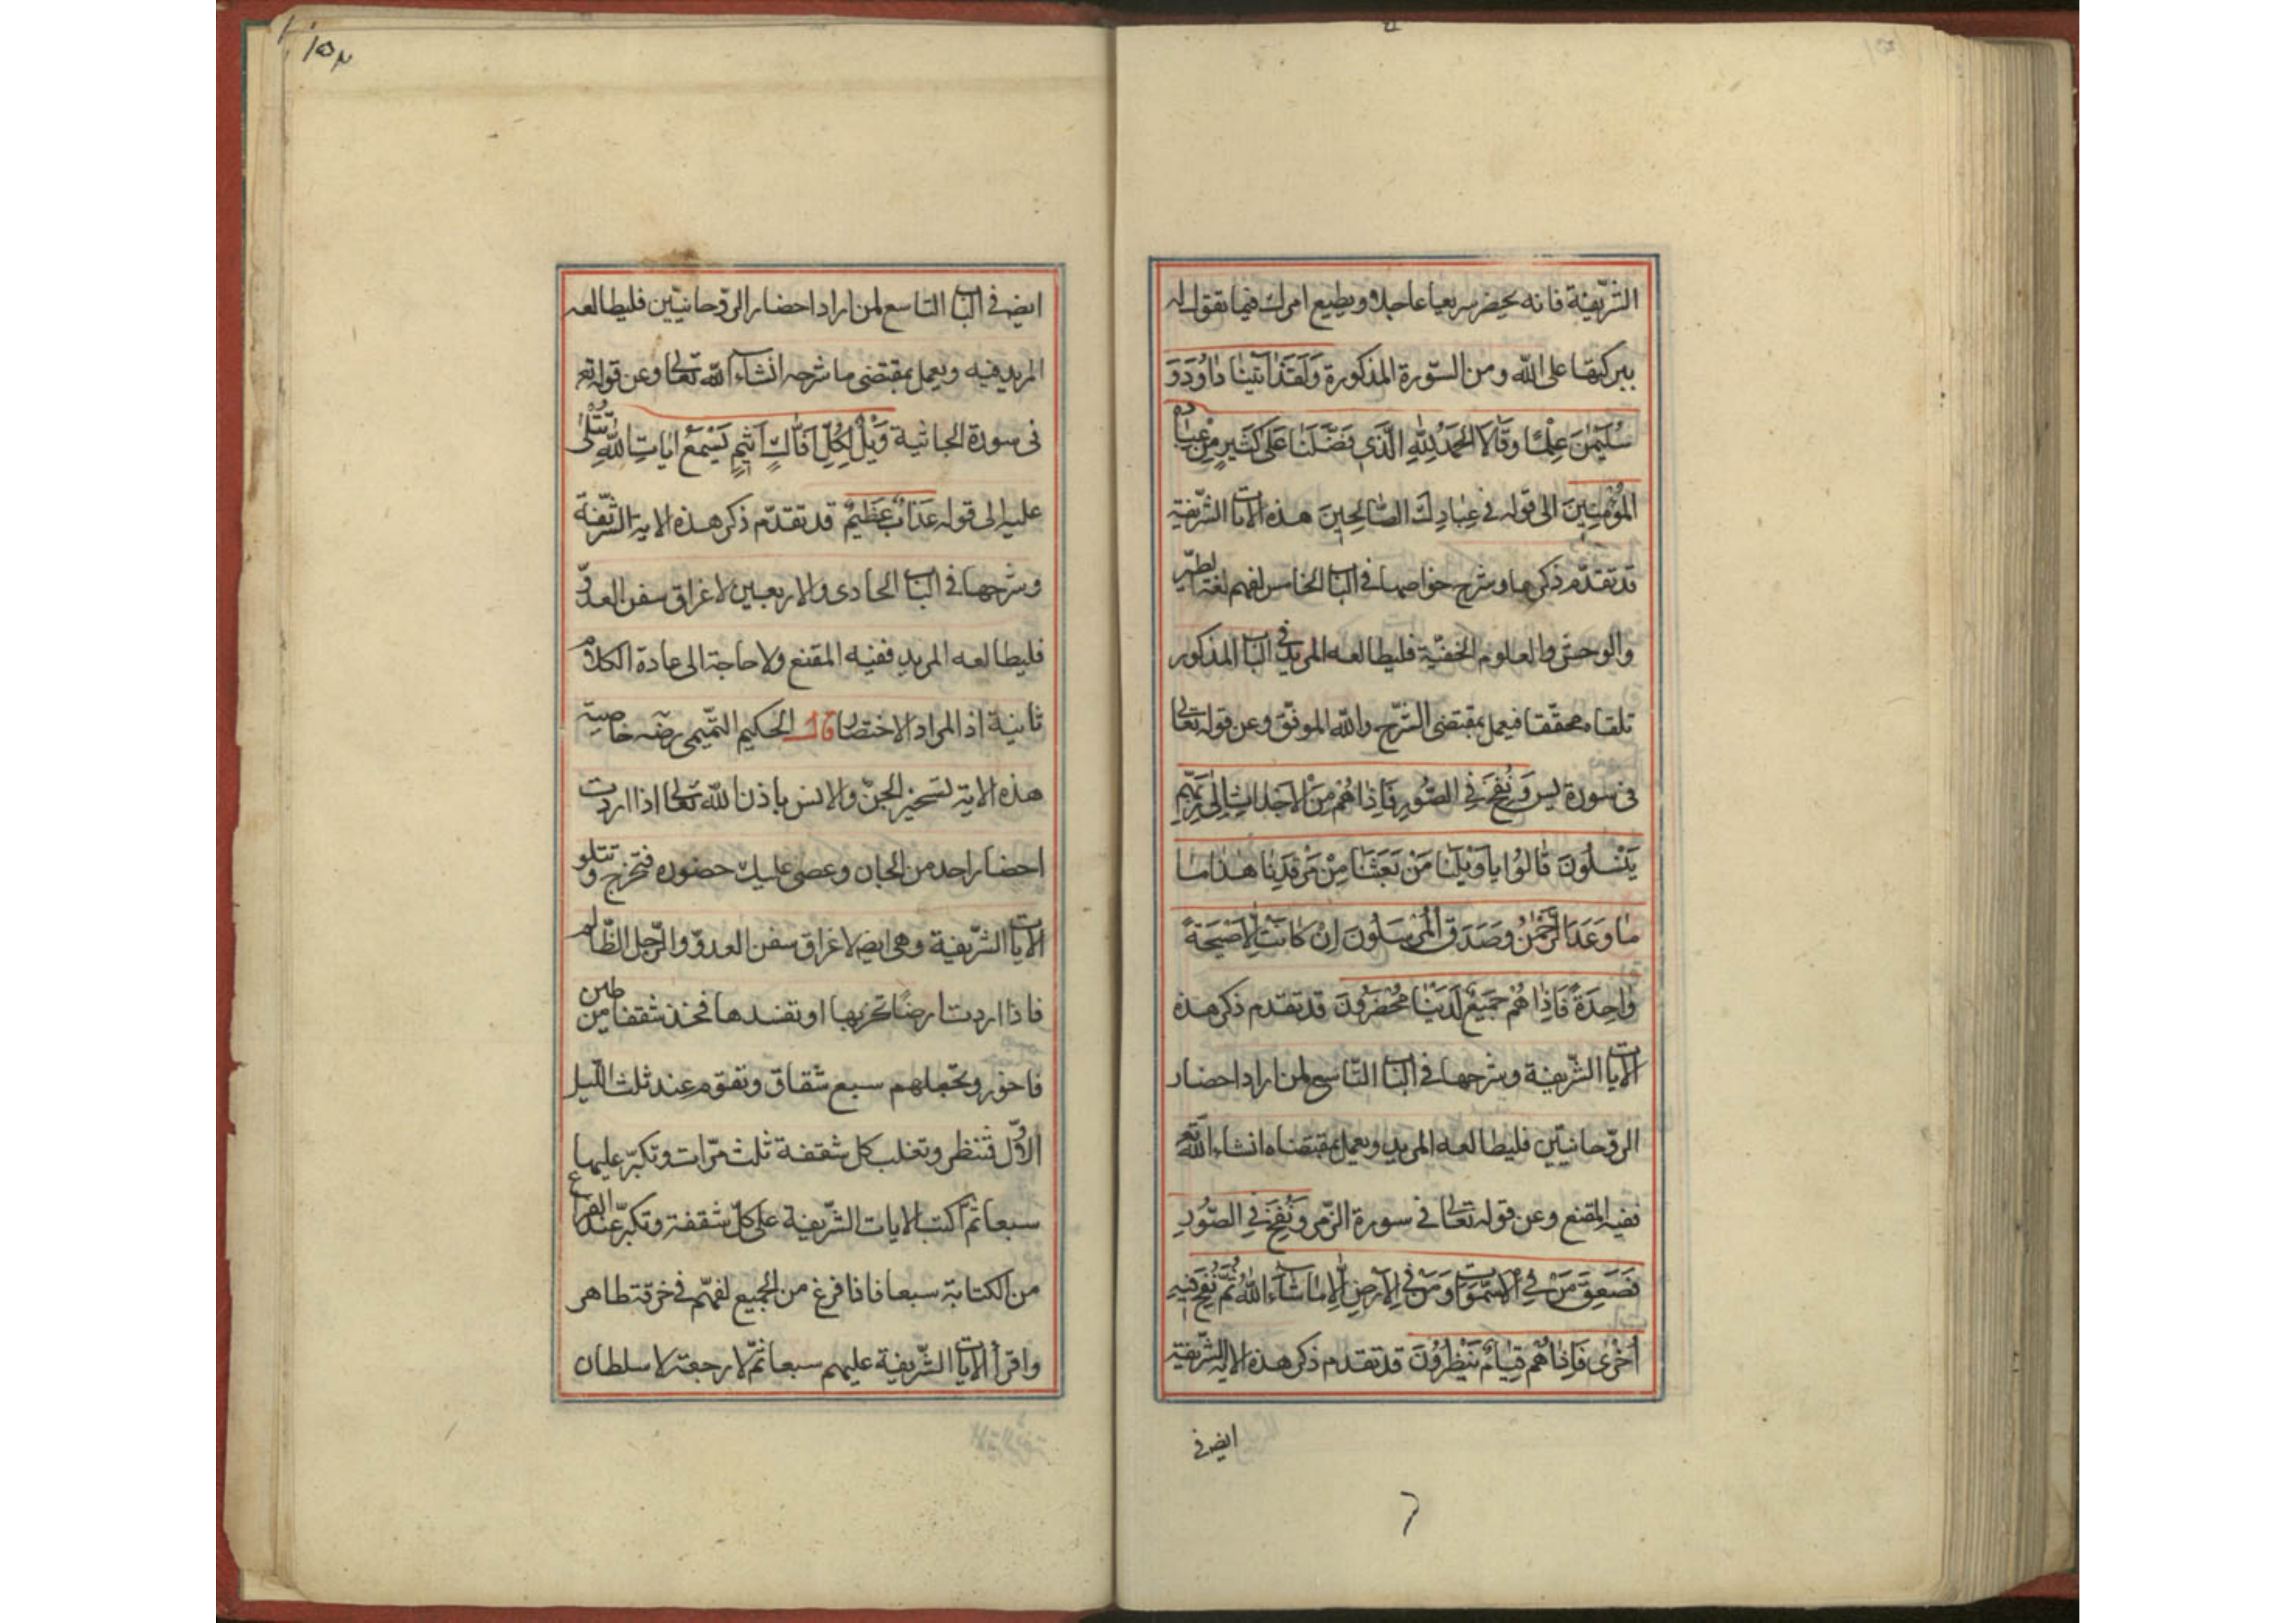 الشّريفة فانه يحضر سريعا عاجلا ويطيع امرك فيما تقول له
ببركتها على الله ومن السّورة المذكورة وَلَقَدْ اٰتَيْنٰا دٰاوُدَ وَ
سُلَيْمٰنَ عِلْمًا وَقٰالَا الْحَمْدُ لِلّٰهِ الَّذى فَضَّلَنٰا عَلىٰ كَثيرٍ مِنْ عِبٰادِهِ
الْمُؤْمِنينَ الى قوله فى عِبٰادِكَ الصّٰالِحينَ هذه الايات الشّريفة
قد تقدّم ذكرها وشرح خواصها فى الباب الخامس لفهم لغة الطير
والوحش والعلوم الخفيّة فليطالعه المريد فى الباب المذكور
تلقاه محققا فيعمل بمقتضى الشّرح والله الموفّق وعن قوله تعالى
فى سورة يس وَنُفِخَ فِى الصُّورِ فَاِذٰا هُمْ مِنَ الْاَجْدٰاثِ اِلىٰ رَبِّهِمْ
يَنْسِلُونَ قٰالُوا يٰا وَيْلَنٰا مَنْ بَعَثَنٰا مِنْ مَرْقَدِنٰا هٰذٰا مٰا
مٰا وَعَدَ الرَّحْمٰنُ وَصَدَقَ الْمُرْسَلُونَ اِنْ كٰانَتْ اِلّٰا صَيْحَةً
وٰاحِدَةً فَاِذٰا هُمْ جَميعٌ لَدَيْنٰا مُحْضَرُونَ قد تقدم ذكر هذه
الايات الشّريفة وشرحها فى الباب التّاسع لمن اراد احضار
الروّحانيّين فليطالعه المريد ويعمل بمقتضاه انشاء الله تع
ففيه المقنع وعن قوله تعالى فى سورة الزّمر وَنُفِخَ فِى الصُّورِ
فَصَعِقَ مَنْ فِى السَّمٰوٰاتِ وَمَنْ فِى الْاَرْضِ اِلّٰا مٰا شٰاءَ اللّٰهُ ثُمَّ نُفِخَ فيهِ
اُخْرىٰ فَاِذٰا هُمْ قِيٰامٌ يَنْظُرُونَ قد تقدم ذكر هذه الاية الشّريفة
ايض فى
١٥٢
ايض فى الباب التاسع لمن اراد احضار الروّحانيّين فليطالعه
المريد فيه ويعمل بمقتضى ما شرحه انشاء الله تعالى وعن قوله تع
فى سورة الجاثية وَيْلٌ لِكُلِّ اَفّٰاكٍ اَثيمٍ يَسْمَعُ اٰيٰاتِ اللّٰهِ تُتْلىٰ
عليه الى قوله عَذٰابٌ عَظيمٌ قد تقدّم ذكر هذه الاية الشّريفة
وشرحها فى الباب الحادى والاربعين لاغراق سفن العدوّ
فليطالعه المريد ففيه المقنع ولا حاجة الى عادة الكلام
ثانية اذ المراد الاختصار قال الحكيم التّميمى رضه خاصية
هذه الاية لتسخير الجنّ والانس باذن الله تعالى اذا اردت
احضار احد من الجان وعصى عليك حضوره فتخرج وتتلو
الايات الشّريفة وهى ايض لاغراق سفن العدوّ والرّجل الظّالم
فاذا اردت ارضًا تخربها او تفسدها فخذ شقفا من طين
فاخور وتجعلهم سبع شقاق وتقوم عند ثلث اللّيل
الاوّل فتنظر وتغلب كل شقفة ثلث مرّات وتكبّر عليها
سبعا ثم اكتب الايات الشّريفة على كلّ شقفة وتكبّر عند الفراغ
من الكتابة سبعا فاذا فرغ من الجميع لفهّم فى خرقة طاهر
واقرأ الايات الشّريفة عليهم سبعا ثمّ لا رجعة لا سلطان